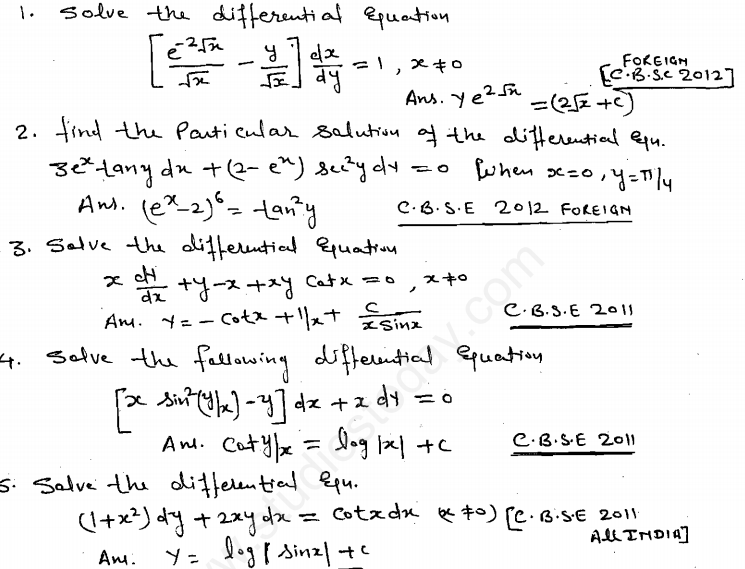 1. Solve the differential Equation
[e^-2√x/√x - y/√x] dx/dy = 1, x ≠ 0
FOREIGN
[C.B.S.C 2012]
Ans. y e^2√x = (2√x + c)
2. find the Particular Solution of the differential Equn.
3e^x tany dx + (2 - e^x) sec²y dy = 0 [When x=0, y=π/4
Ans. (e^x - 2)^6 = tan²y C.B.S.E 2012 FOREIGN
3. Solve the differential Equation
x dy/dx + y - x + xy Cotx = 0, x ≠ 0
Ans. y = - Cotx + 1/x + c/(x Sinx) C.B.S.E 2011
4. Solve the following differential Equation
[x sin²(y/x) - y] dx + x dy = 0
Ans. Cot y/x = log |x| + c C.B.S.E 2011
5. Solve the differential Equ.
(1+x²) dy + 2xy dx = Cotx dx (x ≠ 0) [C.B.S.E 2011
All INDIA]
Ans. y = log | Sinx| + c
studiestoday.com